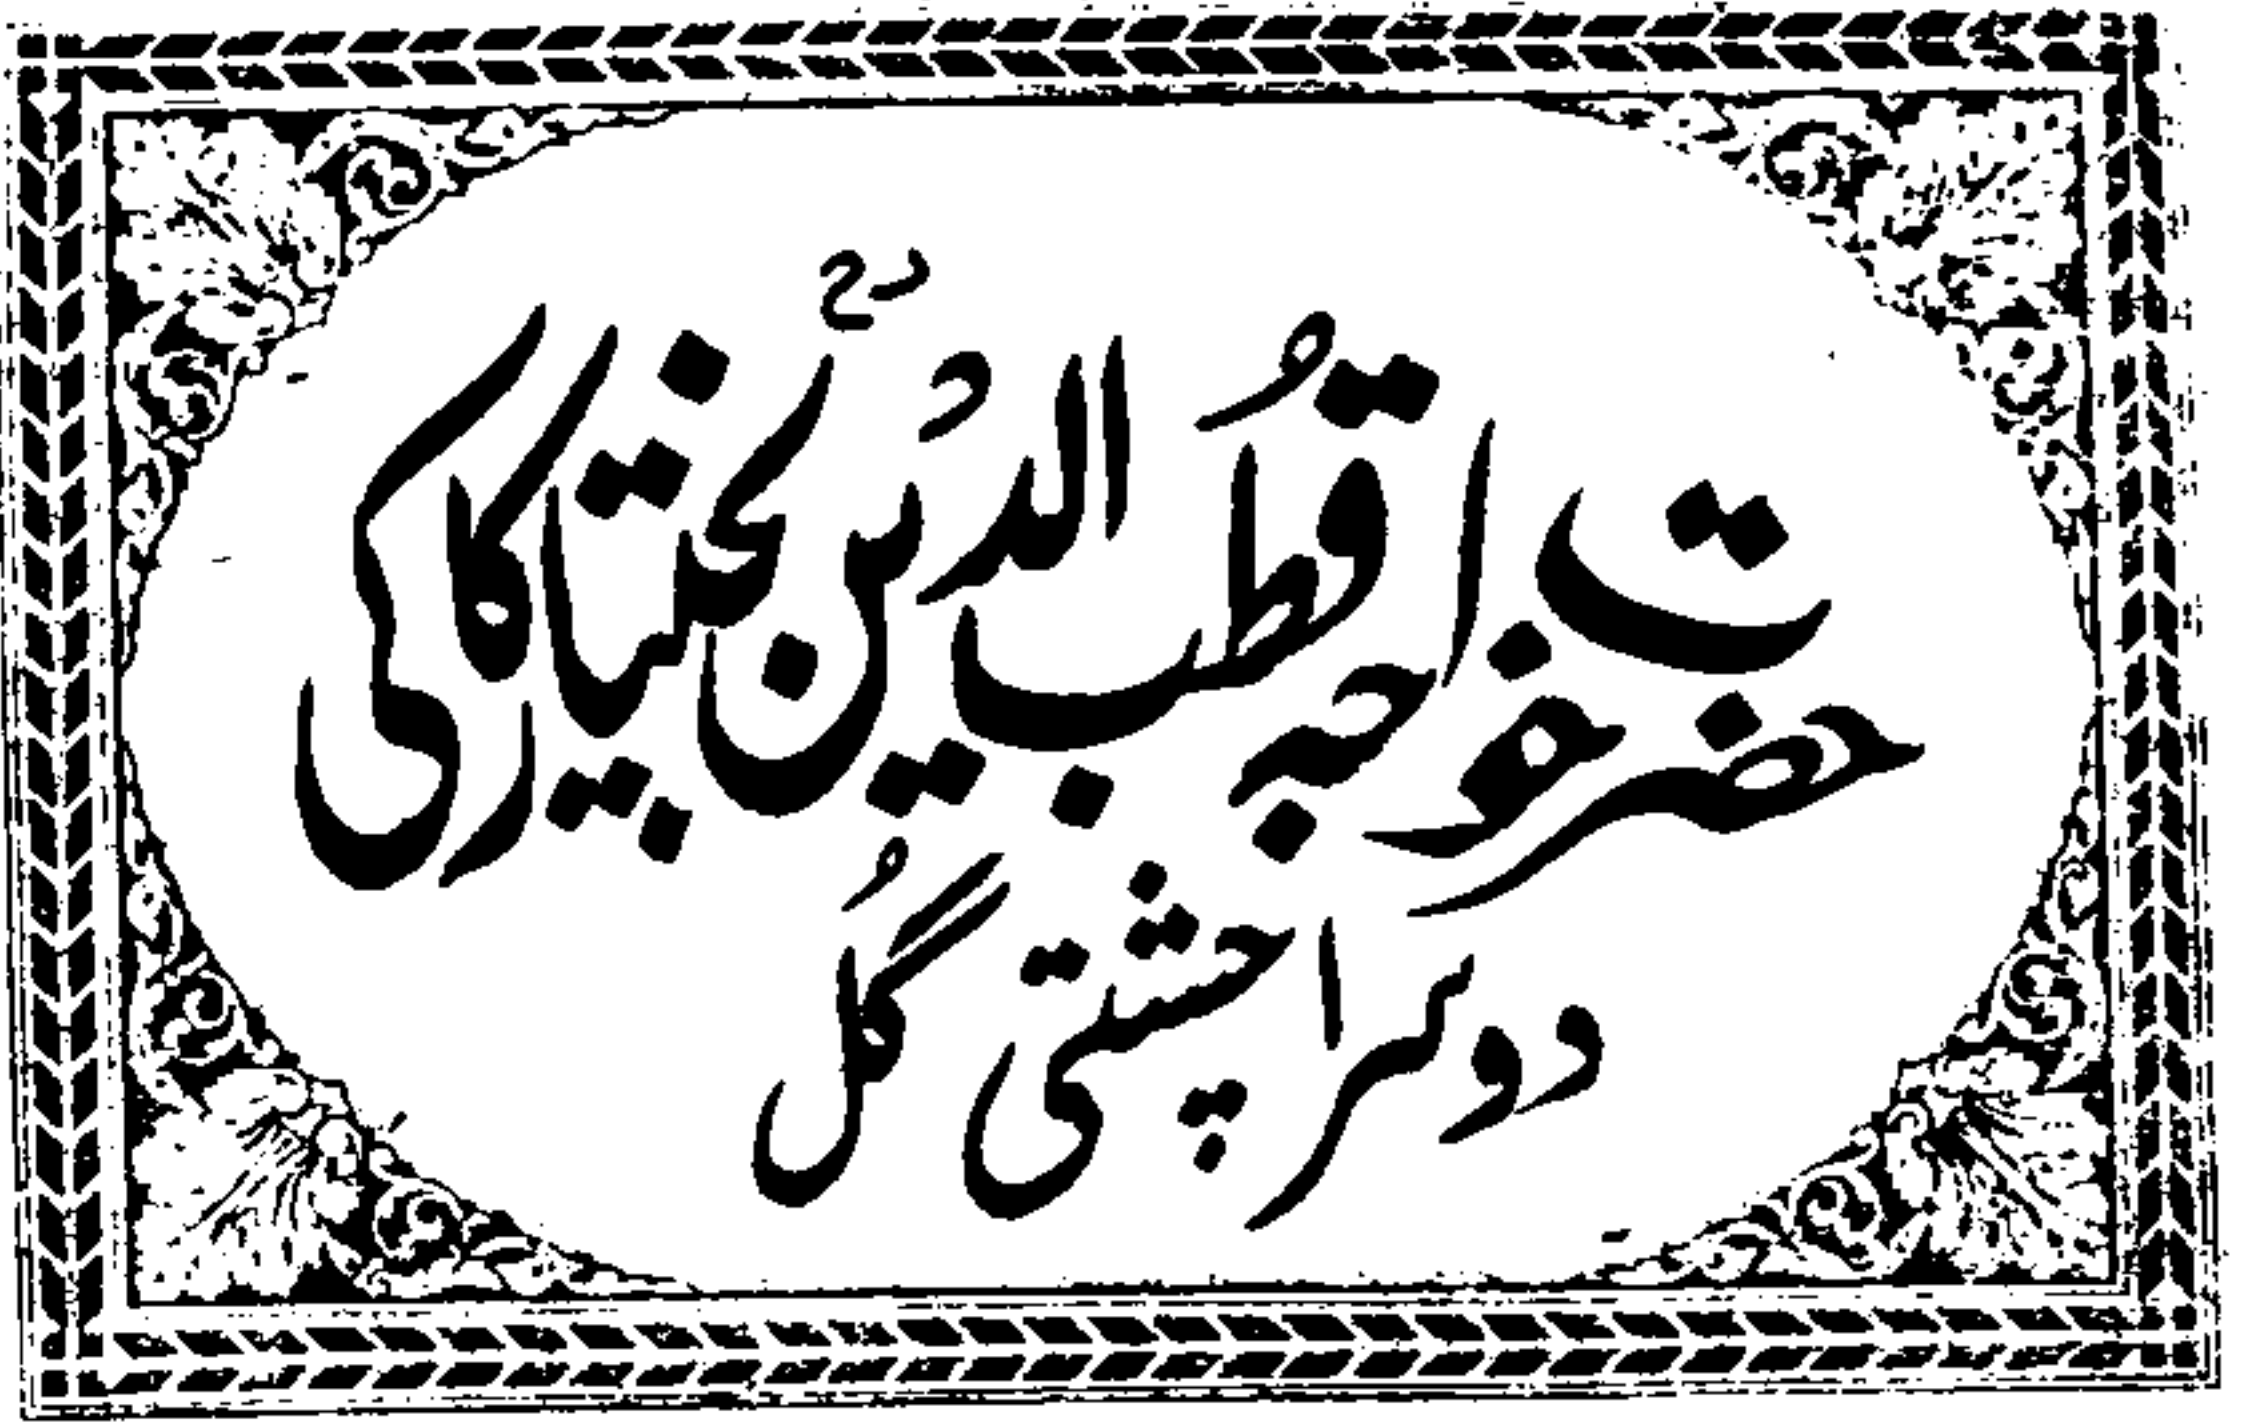 حضرت خواجہ قُطب الدین بختیار کاکیؒ
دوسرا چشتی گُل